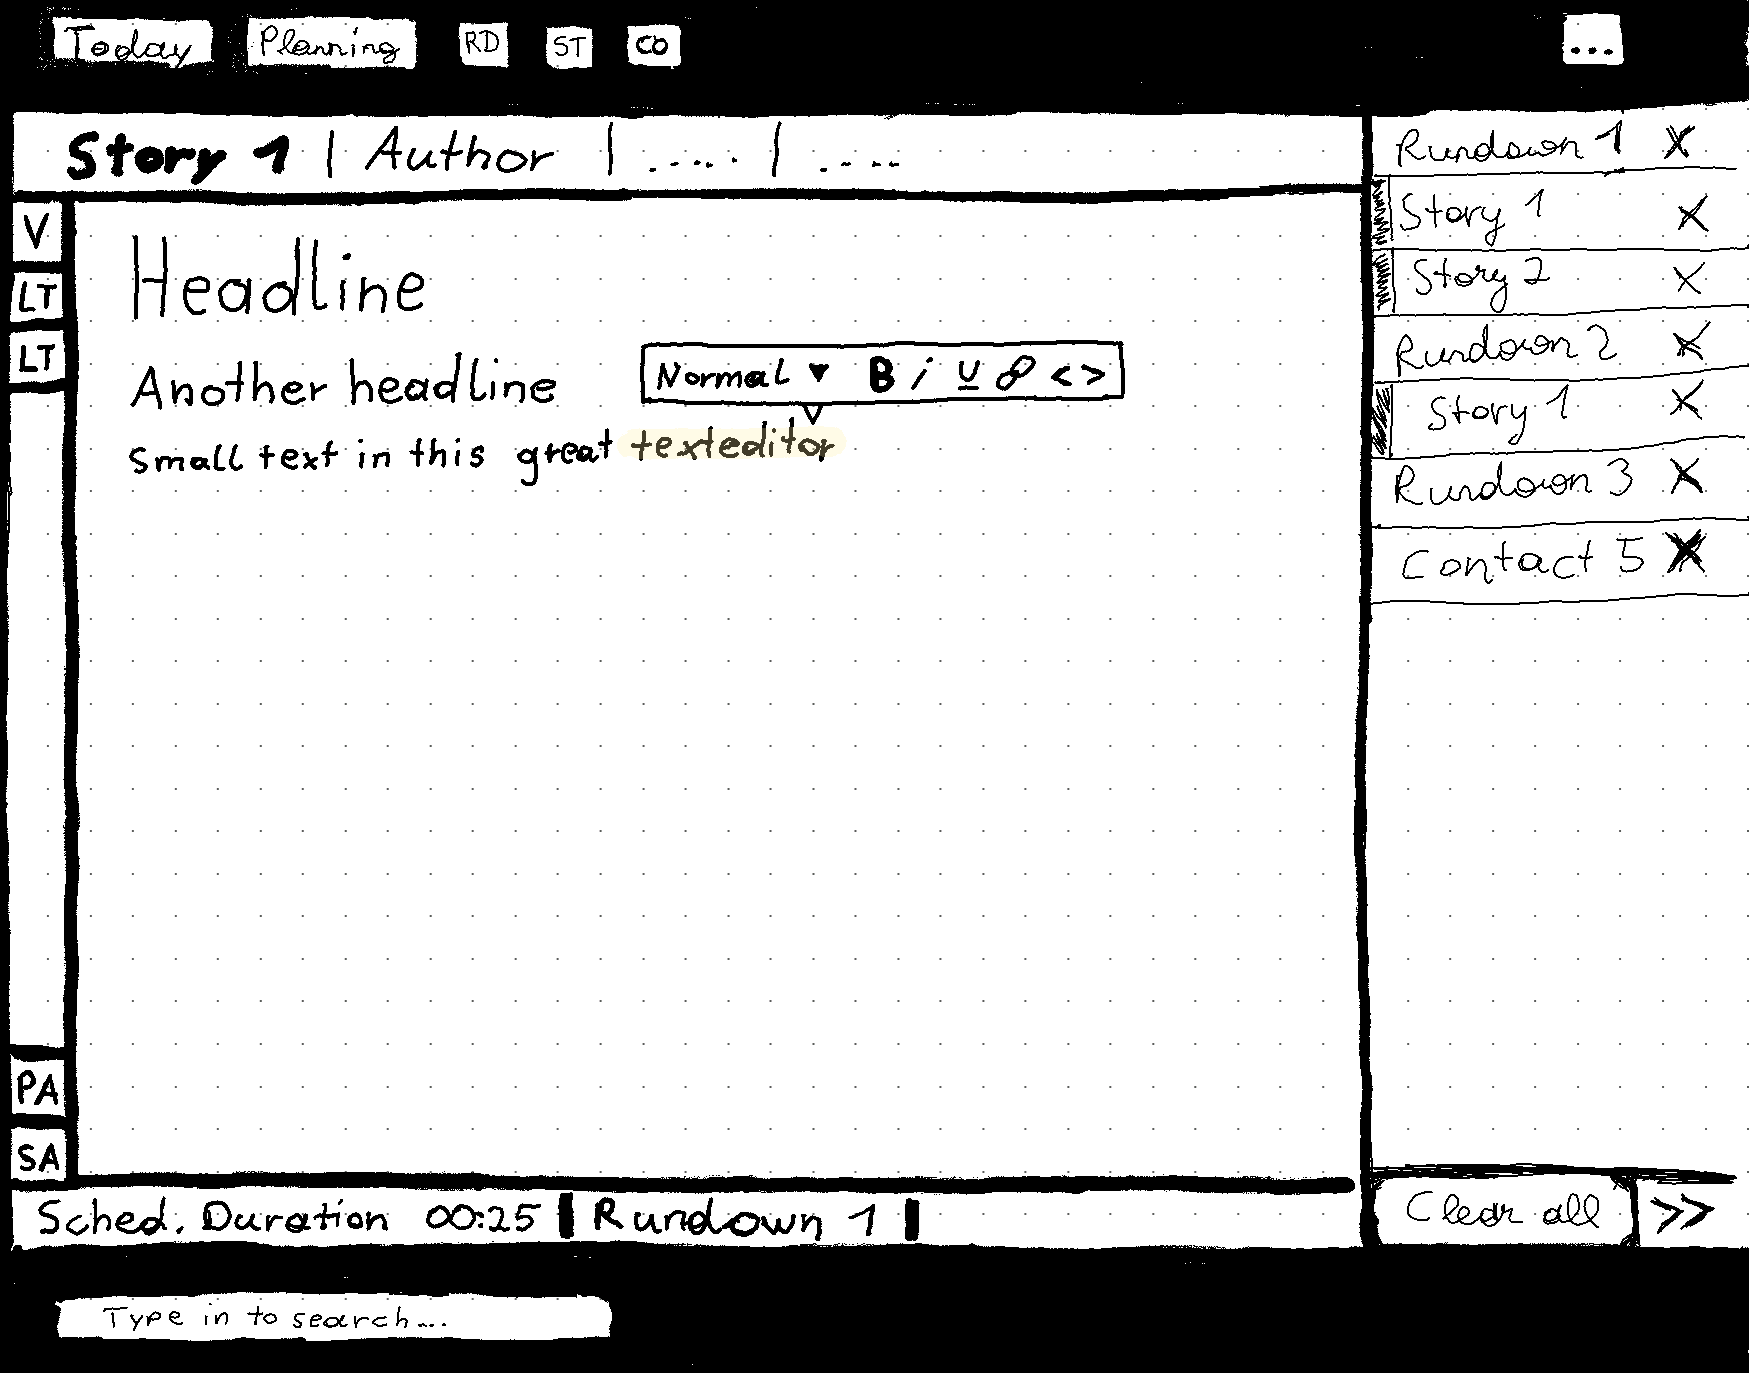 Today Planning RD ST CO ...
Story 1 | Author | ..... | ....
V
LT
LT
Headline
Another headline
Normal ▼ B i U <>
Small text in this great texteditor
PA
SA
Sched. Duration 00:25 | Rundown 1 |
Rundown 1 X
Story 1 X
Story 2 X
Rundown 2 X
Story 1 X
Rundown 3 X
Contact 5 X
Clear all >>
Type in to search...